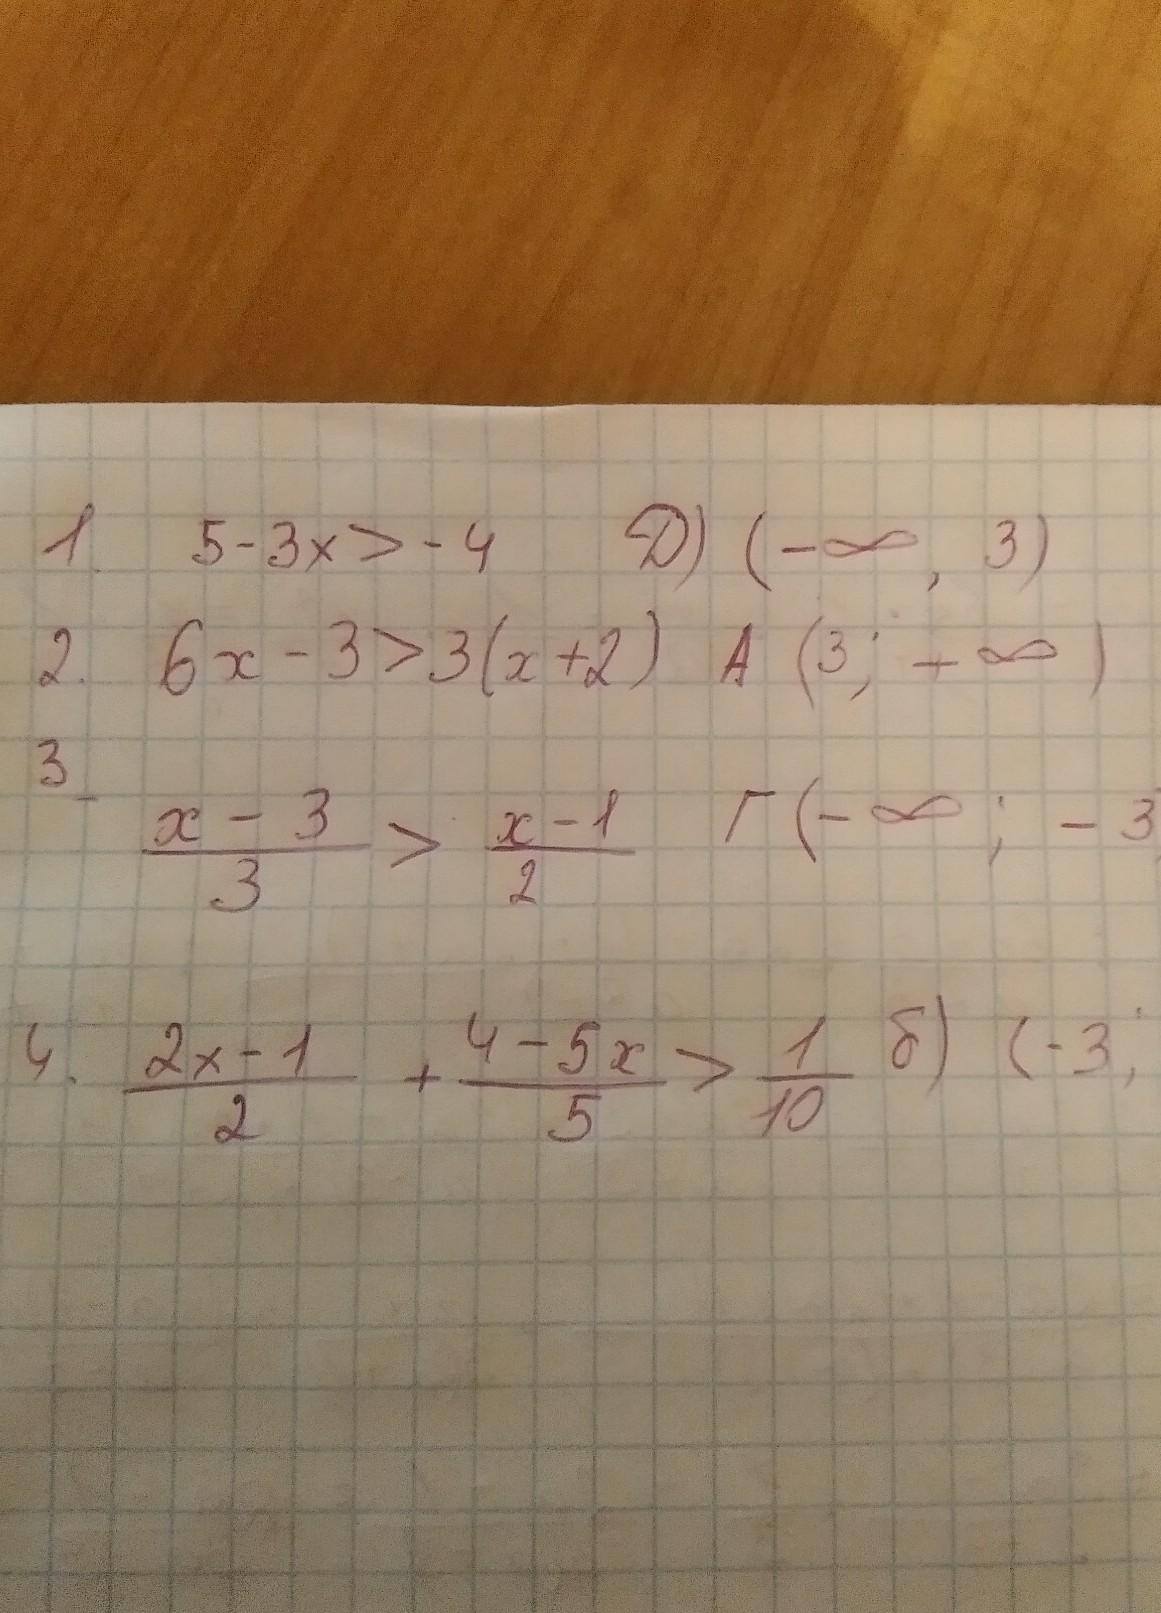 1. 5-3x>-4 Д) (-∞, 3)
2. 6x-3>3(x+2) А (3; +∞)
3. (x-3)/3 > (x-1)/2 Г (-∞; -3
4. (2x-1)/2 + (4-5x)/5 > 1/10 б) (-3;